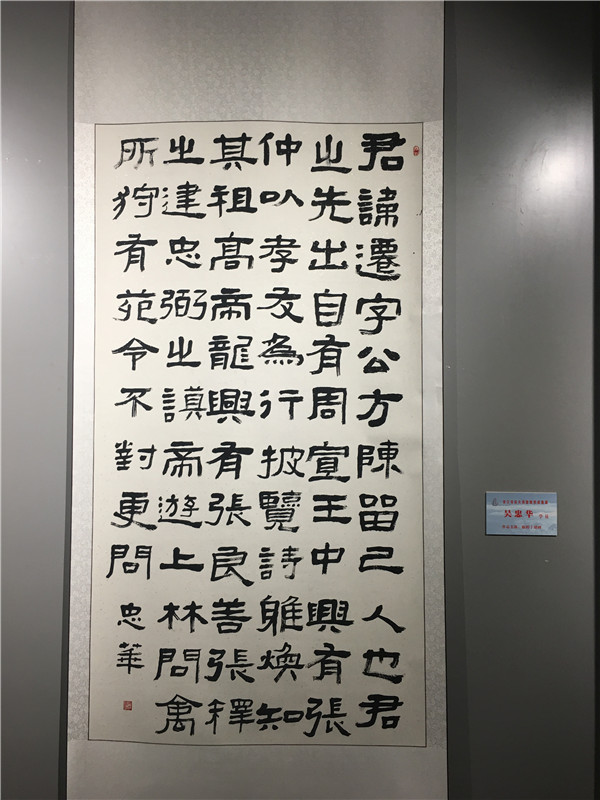 君諱遷字公方陳留己人也君
之先出自有周宣王中興有張
仲以孝友為行披覽詩雅煥知
其祖高帝龍興有張良善張釋
之建忠弼之謨帝遊上林問禽
所狩有苑令不對更問
忠華
吴忠华